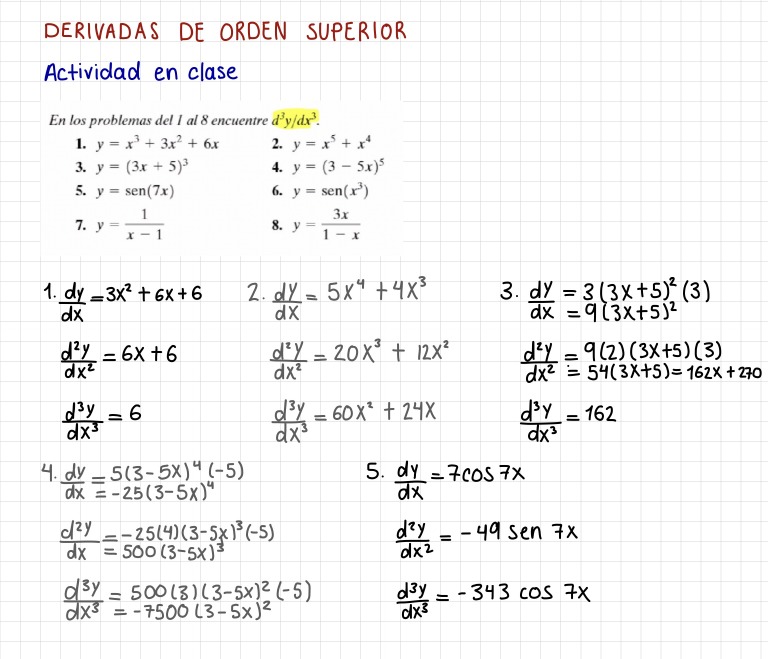 DERIVADAS DE ORDEN SUPERIOR
Actividad en clase
En los problemas del 1 al 8 encuentre d³y/dx³.
1. y = x³ + 3x² + 6x
2. y = x⁵ + x⁴
3. y = (3x + 5)³
4. y = (3 − 5x)⁵
5. y = sen(7x)
6. y = sen(x³)
7. y = 1/(x − 1)
8. y = 3x/(1 − x)
1. dy/dx = 3x² + 6x + 6
d²y/dx² = 6x + 6
d³y/dx³ = 6
2. dy/dx = 5x⁴ + 4x³
d²y/dx² = 20x³ + 12x²
d³y/dx³ = 60x² + 24x
3. dy/dx = 3(3x+5)²(3)
= 9(3x+5)²
d²y/dx² = 9(2)(3x+5)(3)
= 54(3x+5) = 162x + 270
d³y/dx³ = 162
4. dy/dx = 5(3−5x)⁴(−5)
= −25(3−5x)⁴
d²y/dx = −25(4)(3−5x)³(−5)
= 500(3−5x)³
d³y/dx³ = 500(3)(3−5x)²(−5)
= −7500(3−5x)²
5. dy/dx = 7cos 7x
d²y/dx² = −49 sen 7x
d³y/dx³ = −343 cos 7x